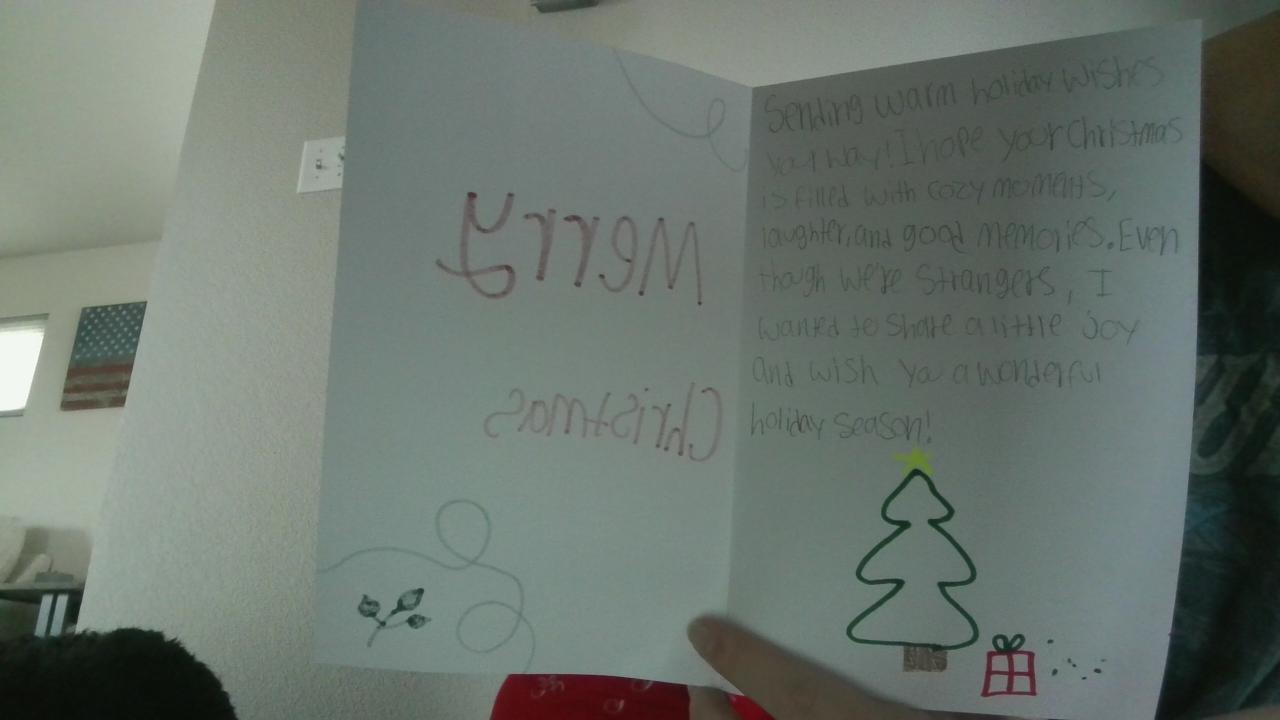 Merry
Christmas
Sending warm holiday wishes
your way! I hope your Christmas
is filled with cozy moments,
laughter, and good memories. Even
though we're strangers, I
wanted to share a little joy
and wish you a wonderful
holiday season!